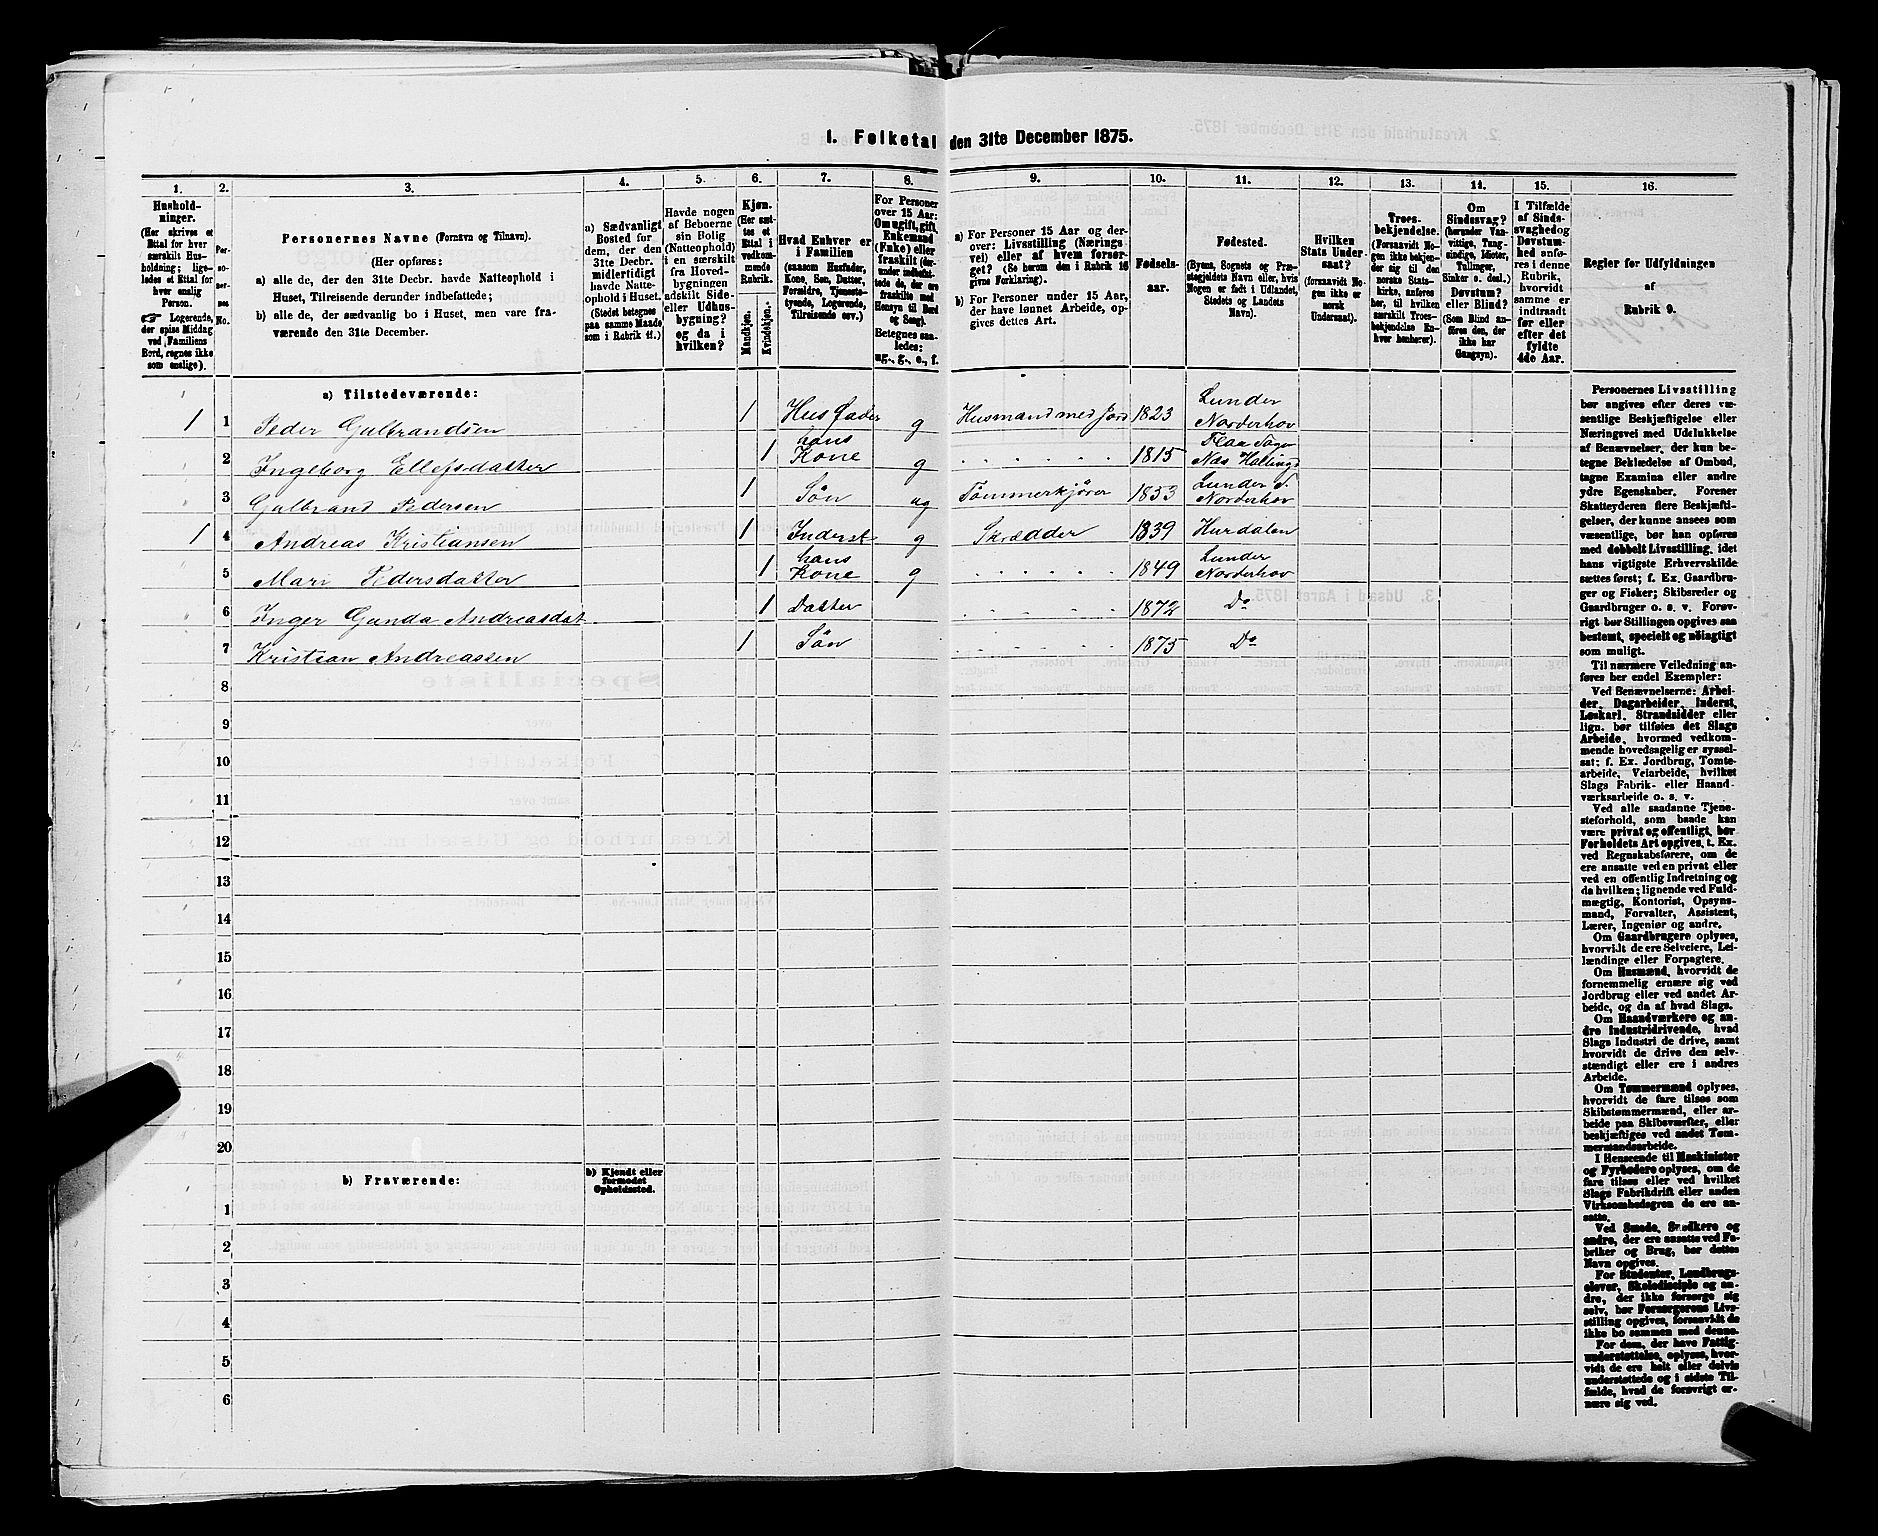 1. Folketal den 31te December 1875.
1. 2. 3. 4. 5. 6. 7. 8. 9. 10. 11. 12. 13. 14. 15. 16.
Hushold-
ninger.
(Her skrives et
Ettal for hver
særskilt Hus-
holdning; lige-
ledes et Ettal for
hver enslig
Person.
☞ Logerende,
der spise Middag
ved Familiens
Bord, regnes ikke
som enslige).
Per-
so-
ner-
nes
No.
Personernes Navne (Fornavn og Tilnavn).
(Her opføres:
a) alle de, der den 31te Decbr. havde Natteophold i
Huset, Tilreisende derunder indbefattede;
b) alle de, der sædvanlig bo i Huset, men vare fra-
værende den 31te December.
a) Sædvanligt
Bosted for
dem, der den
31te Decbr.
midlertidigt
havde Natte-
ophold i Huset.
(Stedet betegnes
paa samme Maade
som i Rubrik 11.)
Havde nogen
af Beboerne
sin Bolig
(Natteophold)
i en særskilt
fra Hoved-
bygningen
adskilt Side-
eller Udhus-
bygning?
og da i
hvilken?
Kjøn.
(Her sæt-
tes et
Ettal i
vedkom-
mende
Rubrik.
Mandkjøn.
Kvindekjøn.
Hvad Enhver er
i Familien
(saasom Husfader,
Kone, Søn, Datter,
Forældre, Tjeneste-
tyende, Logerende,
Tilreisende osv.)
For Personer
over 15 Aar:
Om ugift, gift,
Enkemand
(Enke) eller
fraskilt (der-
under indbefat-
tede de, der ere
fraskilte med
Hensyn til Bord
og Seng).
Betegnes saa-
ledes:
ug., g., e., f.
a) For Personer 15 Aar og der-
over: Livsstilling (Nærings-
vei) eller af hvem forsør-
get? (Se herom den i Rubrik 16
givne Forklaring).
b) For Personer under 15 Aar,
der have lønnet Arbeide, op-
gives dettes Art.
Fødsels-
aar.
Fødested.
(Byens, Sognets og Præ-
stegjeldets Navn eller, hvis
Nogen er født i Udlandet,
Stedets og Landets
Navn).
Hvilken
Stats Under-
saat?
(forsaavidt No-
gen ikke er
norsk
Undersaat).
Troes-
bekjendelse.
(Forsaavidt No-
gen ikke bekjen-
der sig til den
norske Stats-
kirke, anføres
her, til hvilken
særskilt Troes-
bekjendelse En-
hver henhører).
Om
Sindssvag?
(herunder Van-
vittige, Tung-
sindige, Idioter,
Tullinger,
Sinker o. desl.)
Døvstum?
eller Blind?
(Som Blind an-
føres den, der
ikke har
Gangsyn).
I Tilfælde
af Sinds-
svaghed og
Døvstum-
hed anfø-
res i denne
Rubrik,
hvorvidt
samme er
indtraadt
før eller
efter det
fyldte
4de Aar.
Regler for Udfyldningen
af
Rubrik 9.
a) Tilstedeværende:
1 1 Peder Gulbrandsen 1 Husfader g Husmand med Jord 1823 Lunder Norderhov
2 Ingeborg Ellefsdatter 1 hans Kone g 1815 Næs Hallingd
3 Gulbrand Pedersen 1 Søn ug Tømmerkjører 1853 Lunder Norderhov
1 4 Andreas Kristiansen 1 Inderst g Skrædder 1839 Hurdalen
5 Mari Pedersdatter 1 hans Kone g 1849 Lunder Norderhov
6 Inger Gunda Andreasdat 1 Datter 1872 Do
7 Kristian Andreassen 1 Søn 1875 Do
8
9
10
11
12
13
14
15
16
17
18
19
20
b) Fraværende: b) Kjendt eller
formodet
Opholdssted.
1
2
3
4
5
6
Personernes Livsstilling
bør angives efter deres væ-
sentlige Beskjæftigelse eller
Næringsvei med Udelukkelse
af Benævnelser, der kun be-
tegne Beklædelse af Ombud,
tagne Examina eller andre
ydre Egenskaber. Forener
Skatteyderen flere Beskjæfti-
gelser, der kunne ansees som
væsentlige, bør han opføres
med dobbelt Livsstilling, idet
hans vigtigste Erhvervskilde
sættes først; f. Ex. Gaardbru-
ger og Fisker; Skibsreder og
Gaardbruger o. s. v. Forøv-
rigt bør Stillingen opgives saa
bestemt, specielt og nøiagtigt
som muligt.
Til nærmere Veiledning an-
føres her endel Exempler:
Ved Benævnelserne: Arbei-
der, Dagarbeider, Inderst,
Løskarl, Strandsidder eller
lign. bør tilføies det Slags
Arbeide, hvormed vedkom-
mende hovedsagelig er syssel-
sat; f. Ex. Jordbrug, Tomte-
arbeide, Veiarbeide, hvilket
Slags Fabrik- eller Haand-
værksarbeide o. s. v.
Ved alle saadanne Tjene-
steforhold, som baade kan
være privat og offentligt, bør
Forholdets Art opgives, t. Ex.
ved Regnskabsførere, om de
ere ansatte ved en privat eller
ved en offentlig Indretning og
da hvilken; lignende ved Fuld-
mægtig, Kontorist, Opsyns-
mand, Forvalter, Assistent,
Lærer, Ingeniør og andre.
Om Gaardbrugere oplyses,
hvorvidt de ere Selveiere, Lei-
lændinge eller Forpagtere.
Om Husmænd, hvorvidt de
fornemmelig ernære sig ved
Jordbrug eller ved andet Ar-
beide, og da af hvad Slags.
Om Haandværkere og an-
dre Industridrivende, hvad
Slags Industri de drive, samt
hvorvidt de drive den selv-
stændigt eller ere i andres
Arbeide.
Om Tømmermænd oplyses,
hvorvidt de fare tilsøs som
Skibstømmermænd, eller ar-
beide paa Skibsværfter, eller
beskjæftiges ved andet Tøm-
mermandsarbeide.
I Henseende til Maskinister
og Fyrbødere oplyses, om de
fare tilsøs eller ved hvilket
Slags Fabrikdrift eller anden
Virksomhedsgren de ere an-
satte.
Ved Smede, Snedkere og
andre, der ere ansatte ved Fa-
briker og Brug, bør dettes
Navn opgives.
For Studenter, Landbrugs-
elever, Skoledisciple og an-
dre, der ikke forsørge sig
selv, bør Forsørgerens Livs-
stilling opgives, forsaavidt de
ikke bo sammen med denne.
For dem, der have Fattig-
understøttelse, oplyses, hvor-
vidt de ere helt eller delvis
understøttede og i sidste Til-
fælde, hvad de forøvrigt er-
nære sig ved.